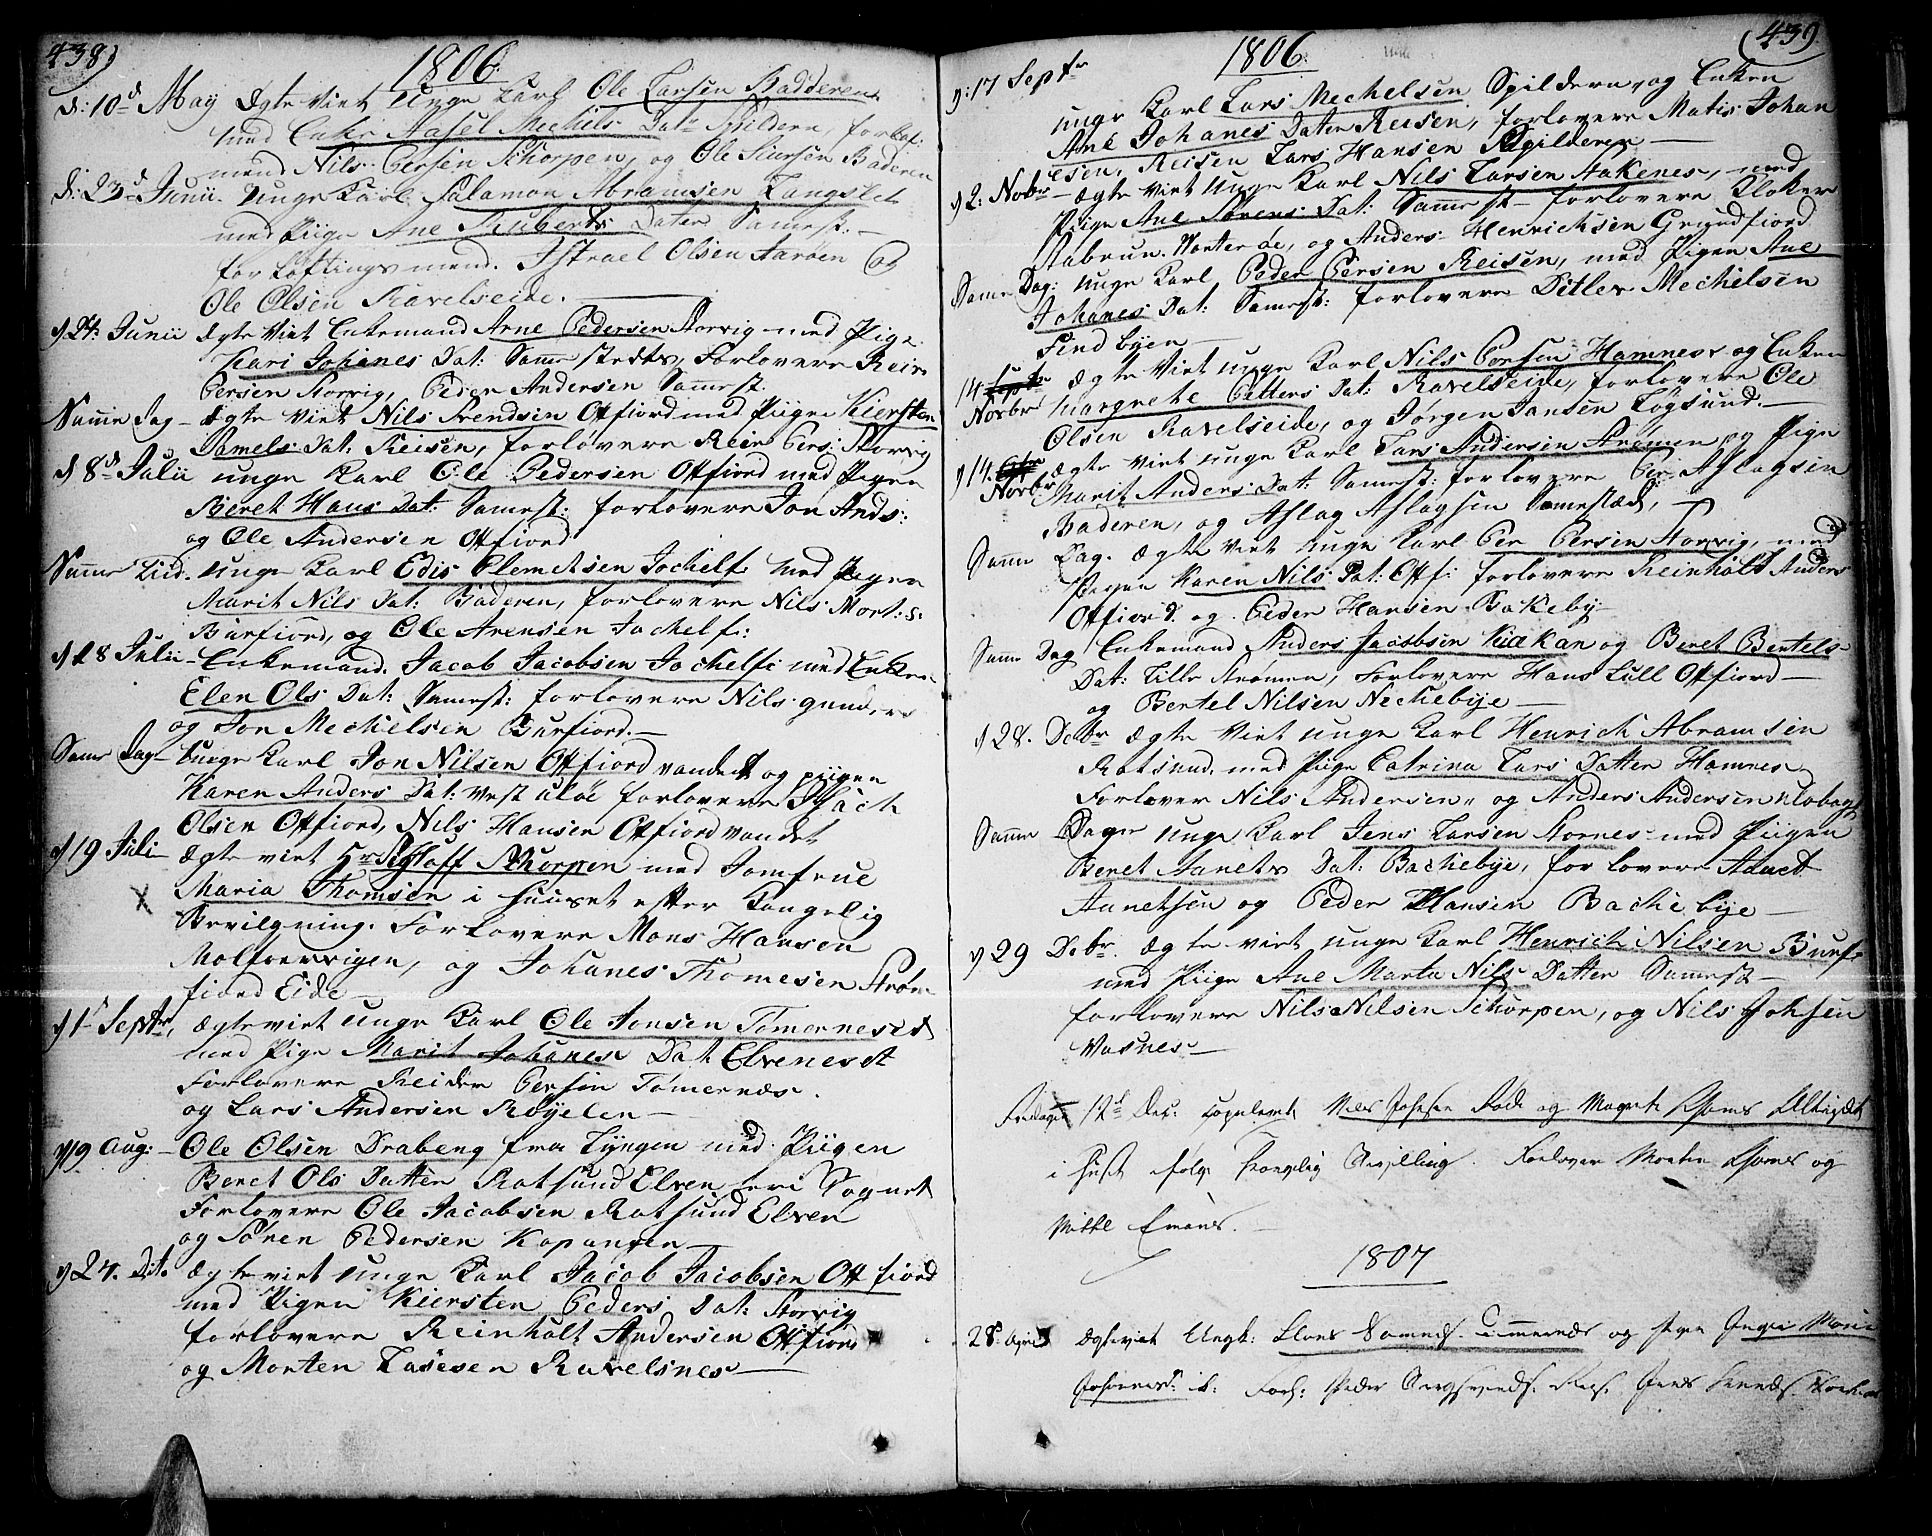 438)
1806.
d: 10d May Ægte Viet Unge Karl Ole Larsen Badderen
med Enke Aasel Mechels Datr Spildern, forlof:
mend Nils Persen Schorpen, og Ole Siursen Baderen
d: 23d Junii. Unge Karl Salamon Abramsen Langslet
med Piige Ane Huberts Dater Samest: —
for Løftings mend. Istrael Olsen Aarøen og
Ole Olsen Ravelseide. —
d 24: Junii Ægte Viet Enkemand Arne Pedersen Storvig med Pige
Kari Johanes Dat: Samme stedts, Forlovere Rein
Persen Storvig, Peder Andersen Samest.
Samme Dag - Ægte Viet Nils Svendsen Otfiord med Piigen Kiersten
Daniels Dat: Reisen, forlovere Rein Pers: Storvig
d 8d Julii unge Karl Ole Pedersen Otfiord med Pigen
Beret Hans Dat: Samest: forlovere Jon Ands:
og Ole Andersen Otfiord
Samme Tiid. unge Karl Edis Clemetsen Jochelf: med Pigen
Marit Nils Dat: Baderen, forlovere Nils Mort:s:
Burfiord, og Ole Arensen Jochelf:
d 18 Julii - Enkemand. Jacob Jacobsen Jochelf: med Enken
Elen Ols Dat: Samest: forlovere Nils gunders
og Jon Mechelsen Burfiord. —
Same Dag - Unge Karl Jon Nilsen Otfiord vandet og piigen
Karen Anders Dat: Vest uløe forlovere Isach
Olsen Otfiord, Nils Hansen Otfiord vandet
d 19 Juli - Ægte viet Hr Schorpen med Jomfrue
Maria Thomsen i Huuset efter Kongelig
Bevilgning. Forlovere Mons Hansen
Molfverrigen, og Johanes Thomesen Strøm
fiord Eide —
d 1 Septr, ægte viet unge Karl Ole Jonsen Tømerneset
med Pige Marit Johanes Dat Elveneset
Forlovere Reider Persen Tømernæs.
og Lars Andersen Røyelen —
d 19 Aug: - Ole Olsen Drabeng fra Lyngen med Piigen
Beret Ols Datter Rotsund Elven her i Sognet
Forlovere Ole Jacobsen Rotsund Elven
og Sören Pedersen Kopangen
d 24. Dit. Ægte viet unge Karl Jacob Jacobsen Otfiord
med Pigen Kiersten Peders Dat: Storvig
forlovere Reinholt Andersen Otfiord
og Morten Lasesen Ravelsnes —
(439
1806.
d: 17 Septr
unge Karl Lars Mechelsen Spildern, og Enken
Ane Johanes Dater Reisen, forlovere Matis Johan
esen, Reisen Lars Hansen Spilderen —
d 2: Nobr - Ægte Viet Unge Karl Nils Larsen Aakenes, med
Piige Ane Sørens Dat: Samest - forlovere Kloker
Aabrun. Vorterøe, og Anders Henrichsen Grundfiord
Same Dag: unge Karl Peder Persen Reisen, med Pigen Ane
Johanes Dat: Samest: forlovere Ditlev Mechelsen
Find byen —
14 Novbr Ægte Viet unge Karl Nils Persen Hamnes og Enken
Margrete Petters Dat: Ravelseide, forlovere Ole
Olsen Ravelseide, og Jørgen Jansen Løgsund. —
d 14. Novbr ægte viet unge Karl Lars Andersen Strømen og Pige
Marit Anders Dat: Samest: forlovere Per Aslagsen
Baderen, og Aslag Aslagsen Samested, —
Samme Dag. Ægte Viet unge Karl Per Persen Storvig, med
Pigen Karen Nils Dat: Otf: forlovere Reinholt Anders
Otfiord. og. Peder Hansen Bakeby
Samme Dag Enkemand Anders Jacobsen Kiækan og Beret Bentels
Dat: Lille Strømen, Forlovere Hans Lull Otfiord —
og Bertel Nilsen Nechebye —
d 28. Debr ægte Viet unge Karl Henrich Abramsen
Rotsund, med Pige Catrina Lars Datter Hamnes
Forlover Nils Andersen " og Anders Andersen
Samme Dager unge Karl Jens Larsen Stornes - med Piigen
Beret Aanets Dat: Bachebye, forlovere Adnet
Aunetsen og Peder Hansen Bachebye —
d 29 Debr. Ægte viet unge Karl Henrich Nilsen Burf:
med Piige Ane Marta Nils Datter Samest —
forlovere Nils Nilsen Schorpen, og Nils Johsen
Vasnes —
12d Dec: copuleret Niels Johsen Røde og Magrete
i Huset følge Kongelig Bevilling. Forlover Morten og
Mikkel
1807
28. April Ægteviet Ungk: og Pigen Inger Marie
Johannesd: ib: Forl: Peder Reis: Jens